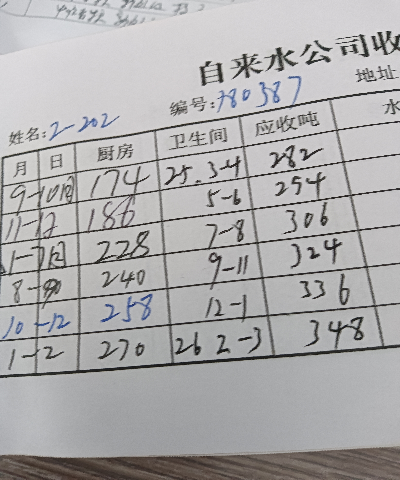 自来水公司收
姓名:2-202 编号:780387 地址
月 日 厨房 卫生间 应收吨 水
9-10月 174 25.3-4 282
11-12 186 5-6 294
1-7月 228 7-8 306
8- 240 9-11 324
10-12 258 12-1 336
1-2 270 26 2-3 348